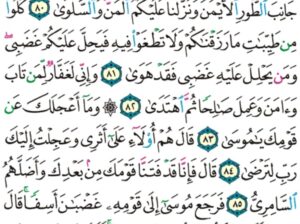 جَانِبَ ٱلطُّورِ ٱلْأَيْمَنَ وَنَزَّلْنَا عَلَيْكُمُ ٱلْمَنَّ وَٱلسَّلْوَىٰ ٨٠ كُلُوا۟
مِن طَيِّبَٰتِ مَا رَزَقْنَٰكُمْ وَلَا تَطْغَوْا۟ فِيهِ فَيَحِلَّ عَلَيْكُمْ غَضَبِى ۖ
وَمَن يَحْلِلْ عَلَيْهِ غَضَبِى فَقَدْ هَوَىٰ ٨١ وَإِنِّى لَغَفَّارٌ لِّمَن تَابَ
وَءَامَنَ وَعَمِلَ صَٰلِحًا ثُمَّ ٱهْتَدَىٰ ٨٢ ۞ وَمَآ أَعْجَلَكَ عَن
قَوْمِكَ يَٰمُوسَىٰ ٨٣ قَالَ هُمْ أُو۟لَآءِ عَلَىٰٓ أَثَرِى وَعَجِلْتُ إِلَيْكَ
رَبِّ لِتَرْضَىٰ ٨٤ قَالَ فَإِنَّا قَدْ فَتَنَّا قَوْمَكَ مِنۢ بَعْدِكَ وَأَضَلَّهُمُ
ٱلسَّامِرِىُّ ٨٥ فَرَجَعَ مُوسَىٰٓ إِلَىٰ قَوْمِهِۦ غَضْبَٰنَ أَسِفًا ۚ قَالَ